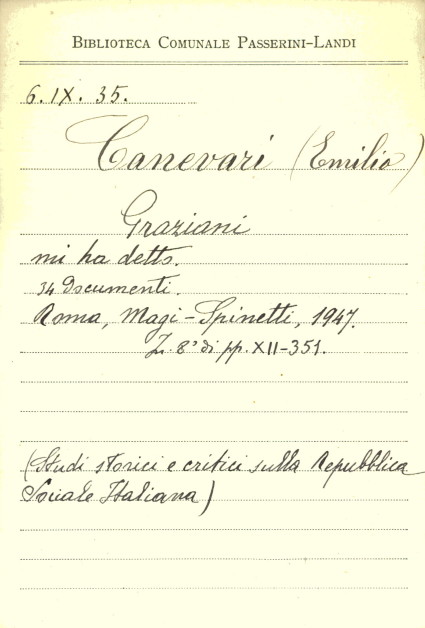 BIBLIOTECA COMUNALE PASSERINI-LANDI
6.IX.35.
Canevari (Emilio)
Graziani
mi ha detto.
34 Documenti.
Roma, Magi-Spinetti, 1947.
8° di pp. XII-351.
(Studi storici e critici sulla Repubblica
Sociale Italiana)